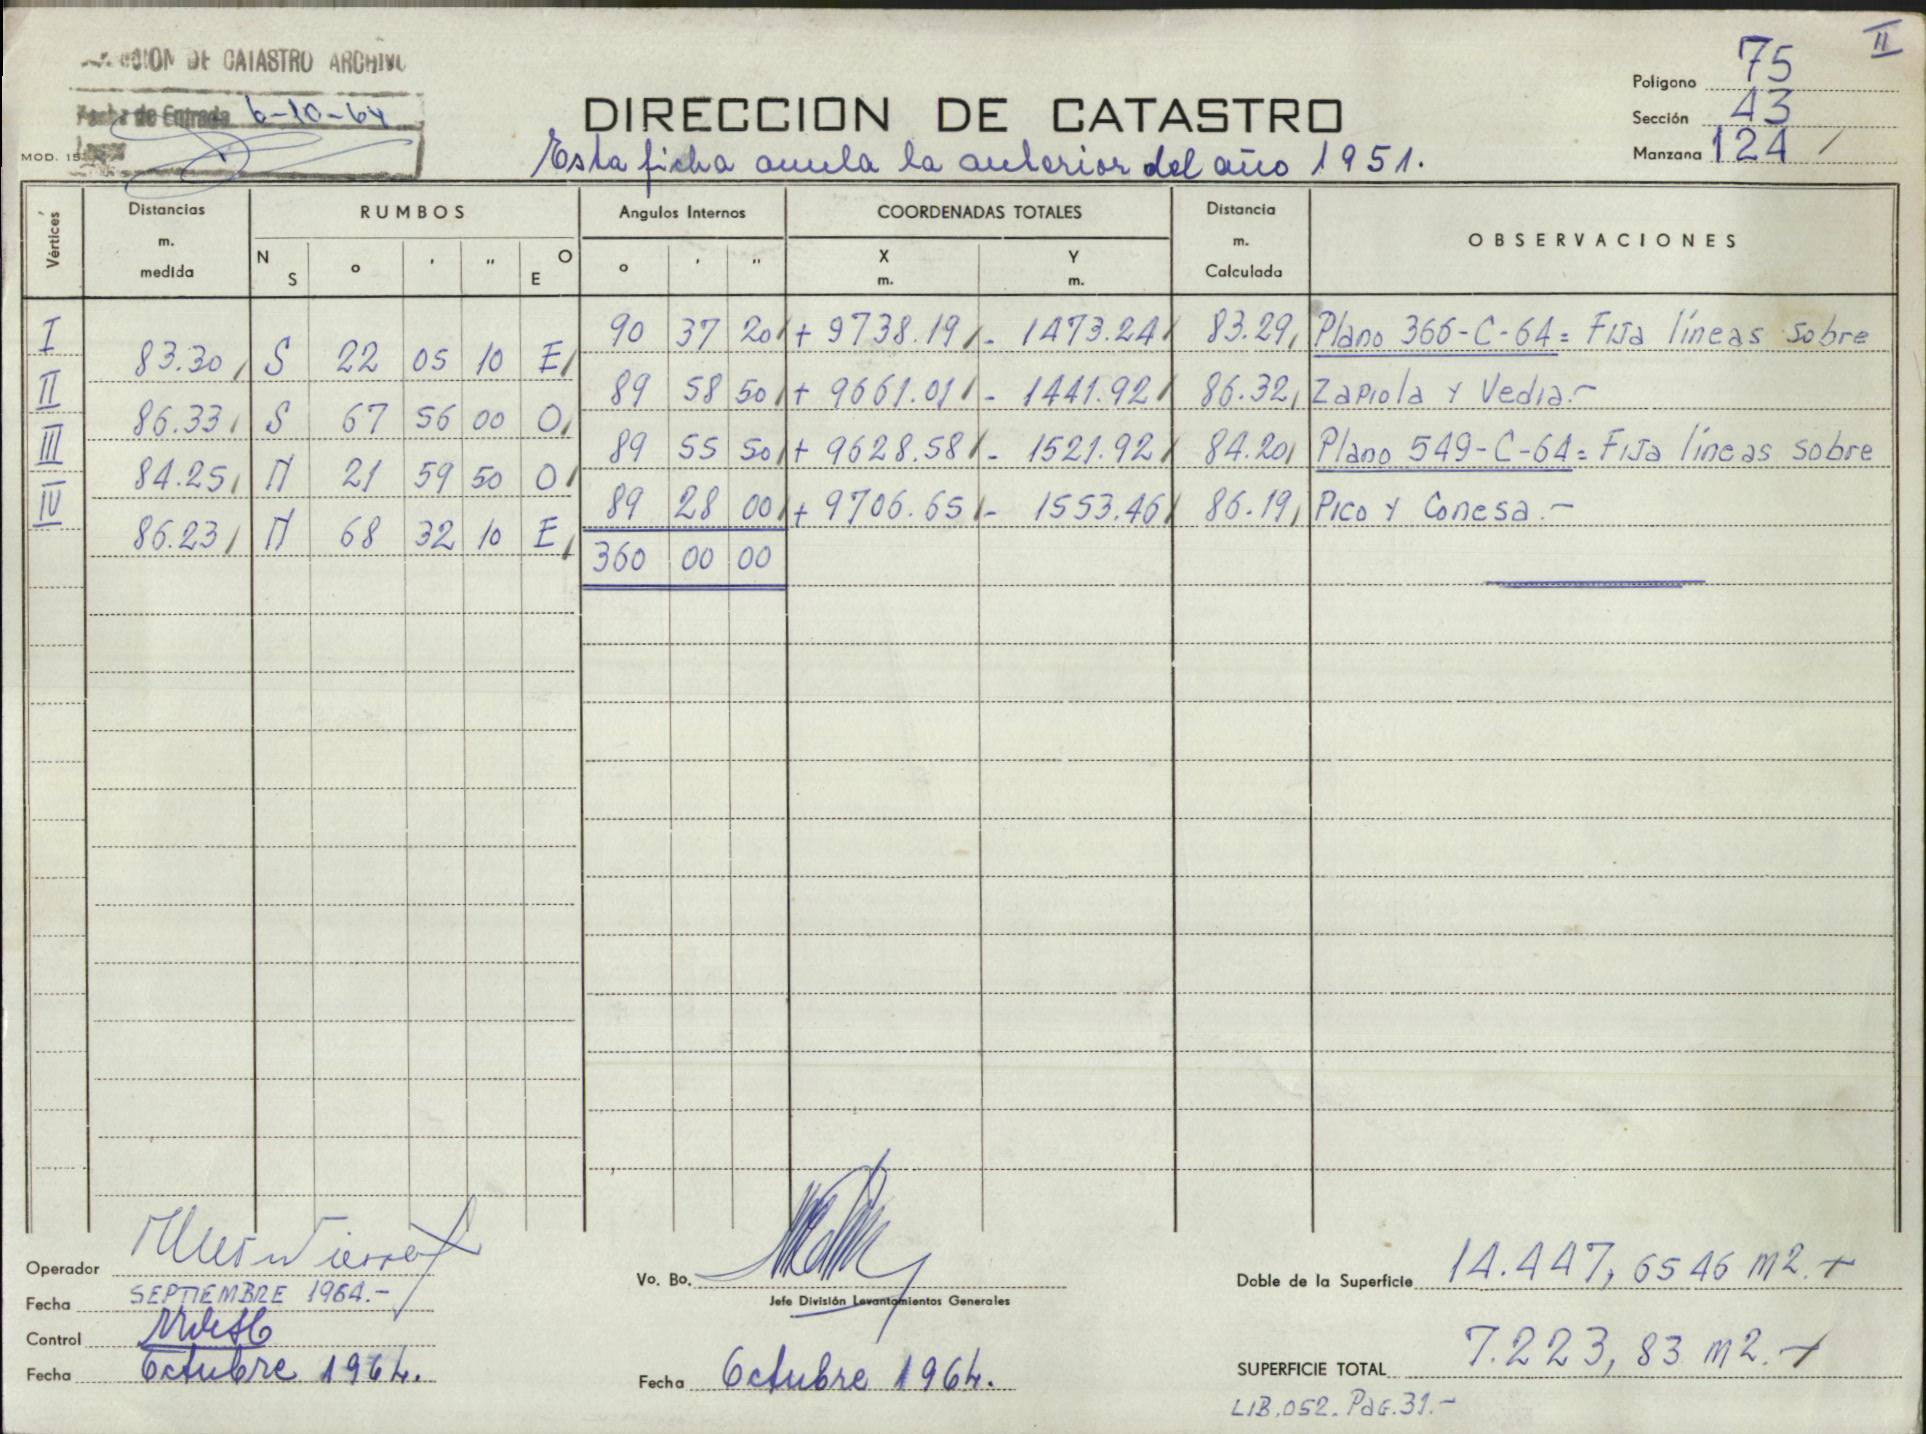 II
DE CATASTRO ARCHIVO
Fecha de Entrada 6-10-64
MOD. 15
DIRECCION DE CATASTRO
Esta ficha anula la anterior del año 1951.
Polígono 75
Sección 43
Manzana 124
Vértices Distancias m. medida RUMBOS Angulos Internos COORDENADAS TOTALES Distancia m. Calculada OBSERVACIONES
N S ° ' " O E ° ' " X m. Y m.
I 90 37 20 + 9738.19 - 1473.24 83.29 Plano 366-C-64 = Fija líneas sobre
83.30 S 22 05 10 E
II 89 58 50 + 9661.01 - 1441.92 86.32 Zapiola y Vedia.-
86.33 S 67 56 00 O
III 89 55 50 + 9628.58 - 1521.92 84.20 Plano 549-C-64 = Fija líneas sobre
84.25 N 21 59 50 O
IV 89 28 00 + 9706.65 - 1553.46 86.19 Pico y Conesa.-
86.23 N 68 32 10 E
360 00 00
Operador
Fecha SEPTIEMBRE 1964.-
Control
Fecha Octubre 1964.
Vo. Bo.
Jefe División Levantamientos Generales
Fecha Octubre 1964.
Doble de la Superficie 14.447,6546 m2.
SUPERFICIE TOTAL 7.223,83 m2.
LIB.052. PAG.31.-